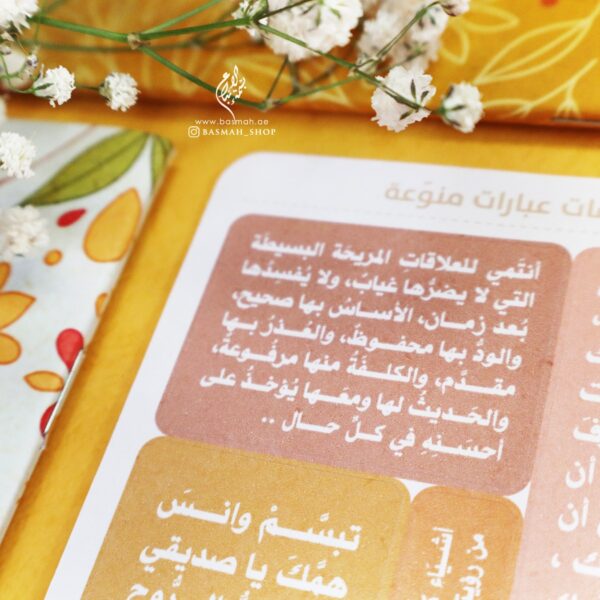 www.basmah.ae
BASMAH_SHOP
عبارات منوّعة
أنتَمي للعلاقاتِ المريحَة البسيطَة
التي لا يضرُّها غيابٌ، ولا يُفسِدُها
بُعد زمـان، الأساسُ بها صحيح،
والودُّ بـها محـفـوظٌ، والعُـذرُ بـها
مقـدَّم، والكلفَةُ منها مرفُوعةٌ،
والحَديثُ لها ومعَـها يُؤخـذُ على
أحسَـنِهِ في كـلِّ حـال ..
تبسَّـمْ وانـسَ
همَّكَ يا صديقي
أن
أن